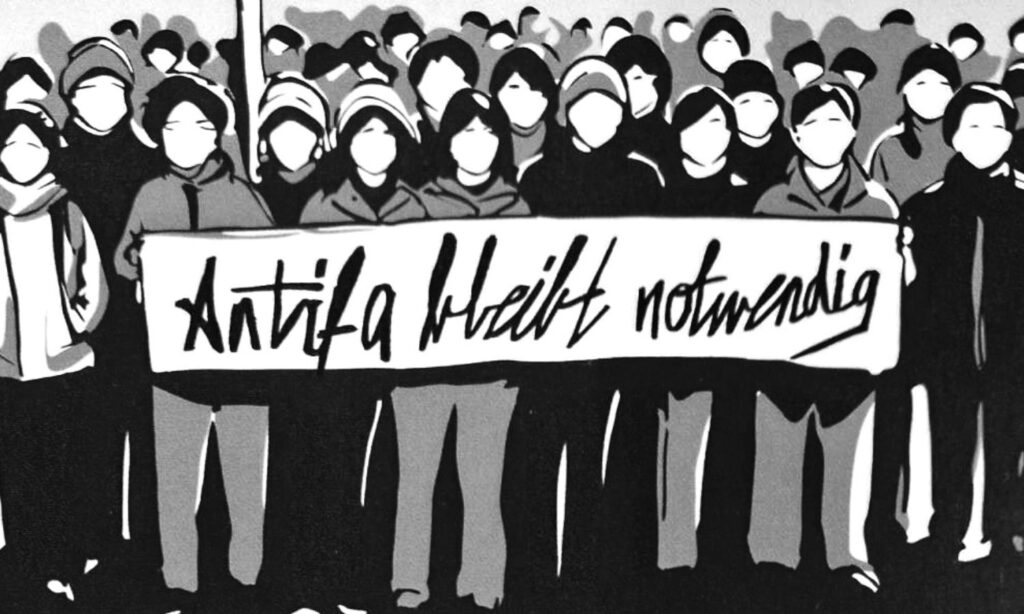 Antifa bleibt notwendig